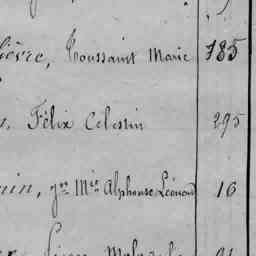 ièvre, Toussaint Marie 785
, Félix Celestin 295
in, Jn Mie Alphonse Léonard 16